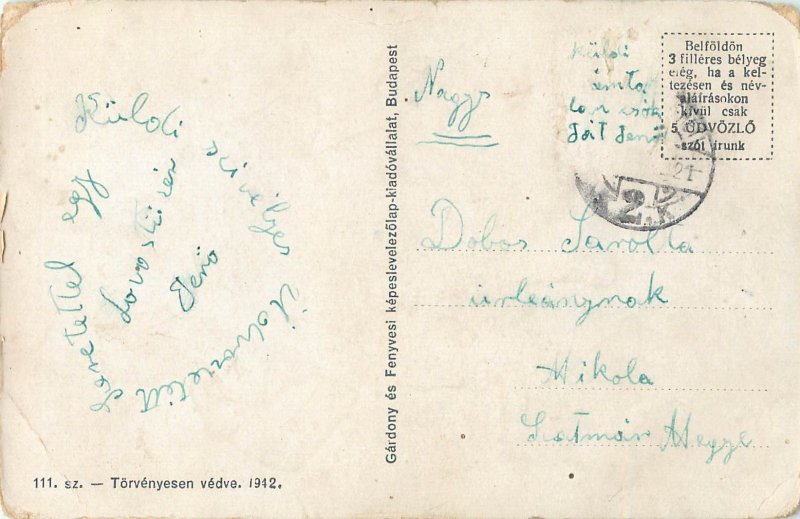 Küldi szívélyes Üdvözletét
Szeretettel egy
Lovas
Jenő
111. sz. — Törvényesen védve. 1942.
Gárdony és Fenyvesi képeslevelezőlap-kiadóvállalat, Budapest
Nagys
Küldi
Jenő
Belföldön
3 filléres bélyeg
elég, ha a kel-
tezésen és név-
aláírásokon
kívül csak
5 ÜDVÖZLŐ
szót írunk
21
2. K
Dobos Sarolta
úrleánynak
Mikola
Szatmár Megye